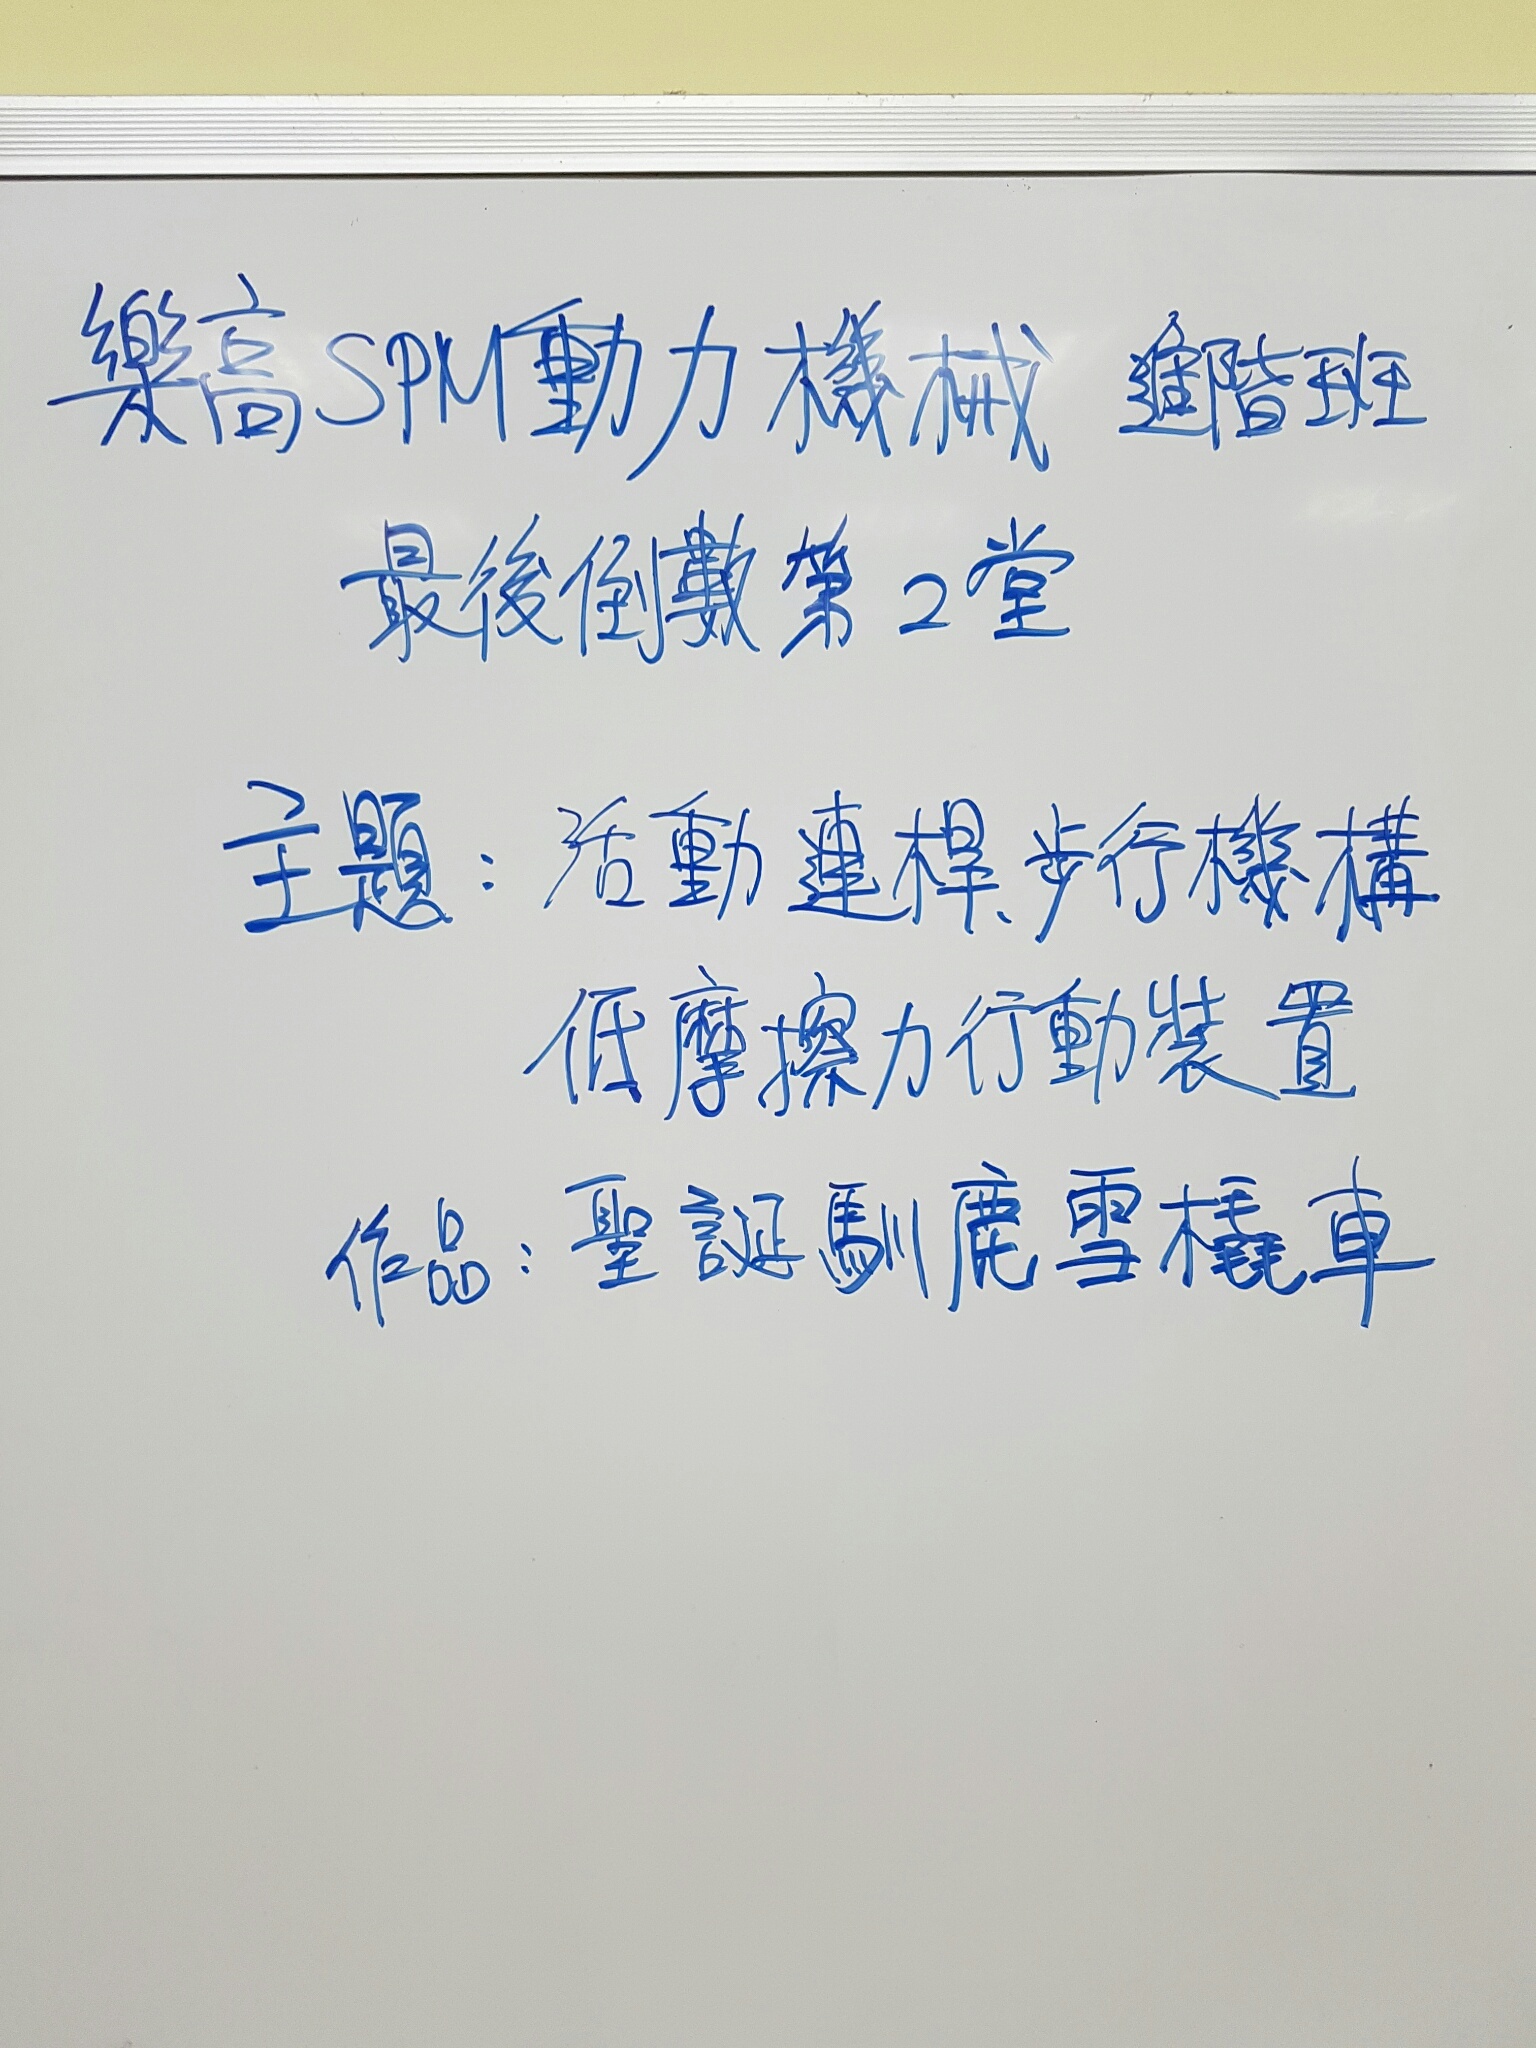 樂高SPM動力機械 進階班
最後倒數第2堂
主題：活動連桿、步行機構
低摩擦力行動裝置
作品：聖誕馴鹿雪橇車